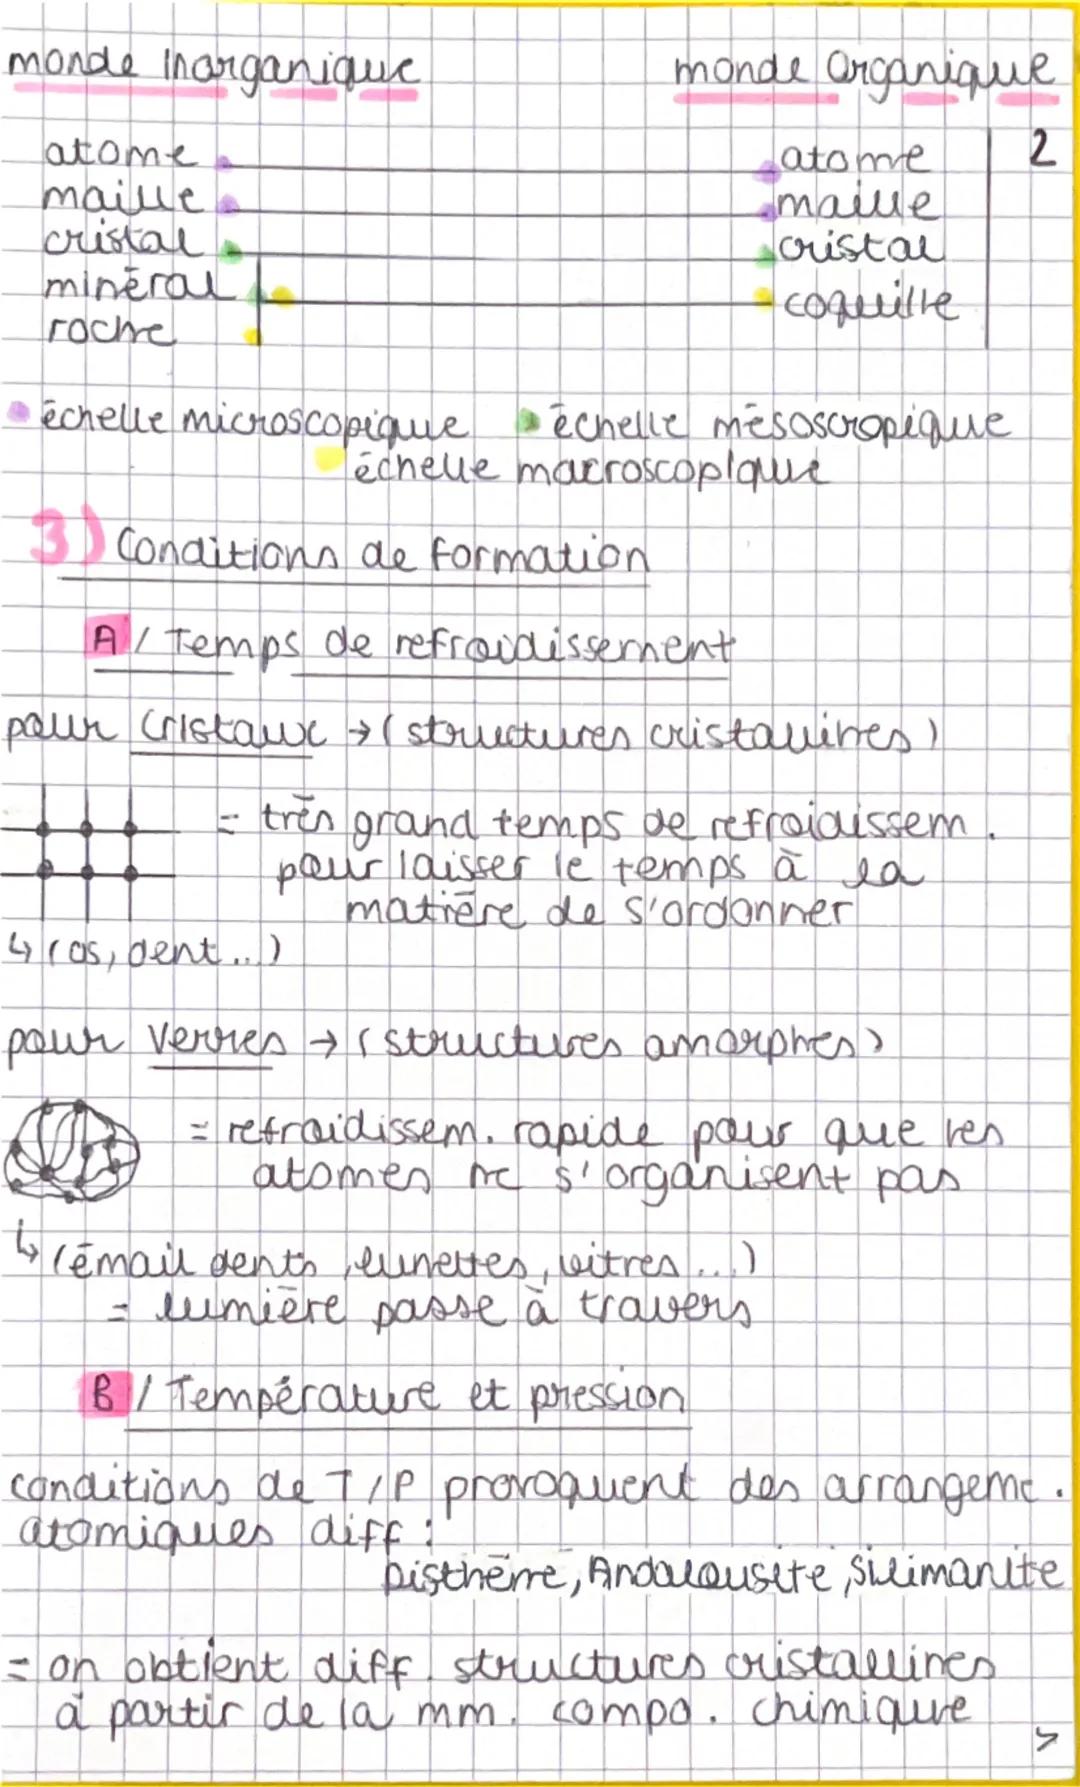 monde inorganique monde organique
atome atome 2
maille maille
cristal cristal
minéral coquille
roche
échelle microscopique échelle mésoscropique
échelle macroscopique
3) Conditions de formation
A / Temps de refroidissement
pour cristaux → (structures cristallines)
= très grand temps de refroidissem.
pour laisser le temps à la
matière de s'ordonner
↳ (os, dent...)
pour verres → (structures amorphes)
= refroidissem. rapide pour que les
atomes ne s'organisent pas
↳ (émail dents, lunettes, vitres...)
= lumière passe à travers
B / Température et pression
conditions de T/P provoquent des arrangeme.
atomiques diff :
Disthène, Andalousite, Silimanite
= on obtient diff. structures cristallines
à partir de la mm. compo. chimique
>